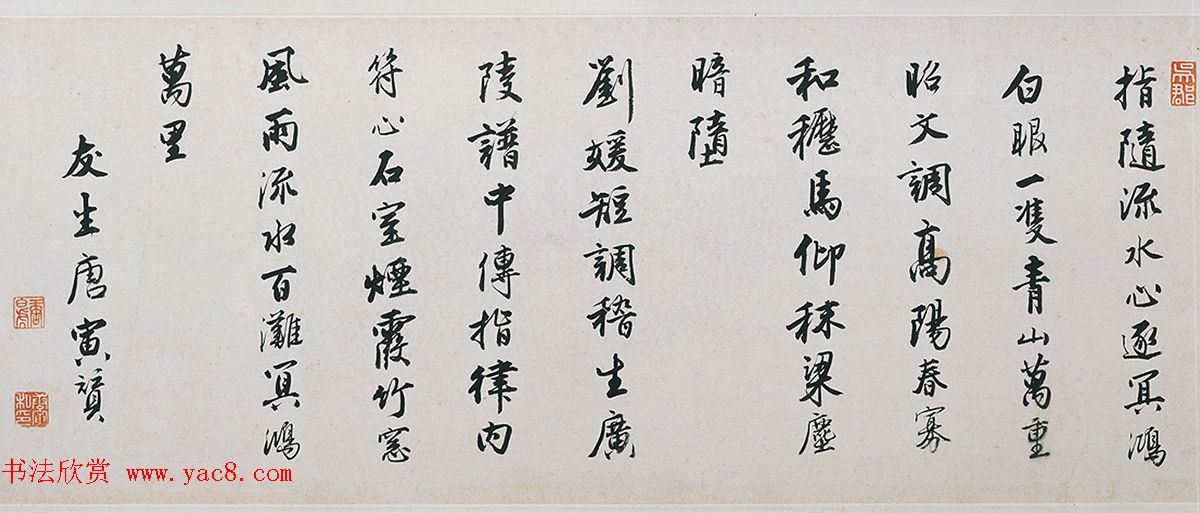 指隨流水心逐冥鴻
白眼一雙青山萬重
昭文調高陽春寡
和櫪馬仰秣梁塵
暗墮
劉媛短調嵇生廣
陵譜中傳指律內
符心石室煙霞竹窓
風雨流水百灘冥鴻
萬里
友生唐寅贊
吳郡
书法欣赏 www.yac8.com